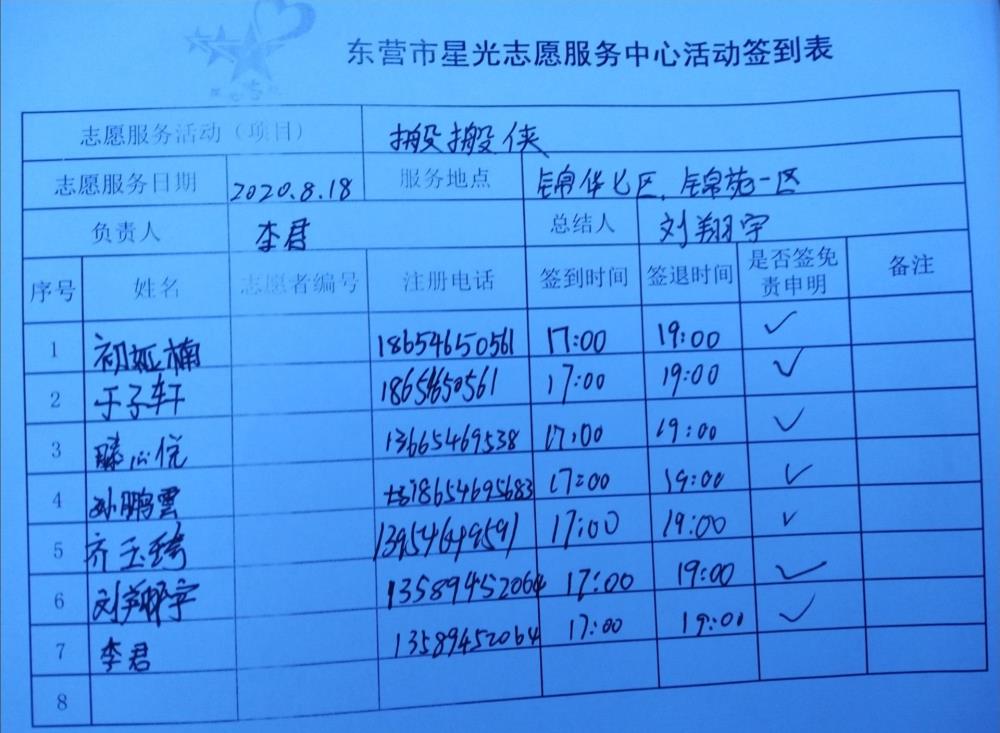 东营市星光志愿服务中心活动签到表
志愿服务活动（项目） 搬搬侠
志愿服务日期 2020.8.18 服务地点 锦华七区，锦苑一区
负责人 李君 总结人 刘翔宇
序号 姓名 志愿者编号 注册电话 签到时间 签退时间 是否签免责申明 备注
1 初娅楠 18654650561 17:00 19:00 ✓
2 于子轩 18654650561 17:00 19:00 ✓
3 滕心悦 13665469538 17:00 19:00 ✓
4 孙鹏雲 18654695683 17:00 19:00 ✓
5 齐玉琦 17:00 19:00 ✓
6 刘翔宇 13589452064 17:00 19:00 ✓
7 李君 13589452064 17:00 19:00 ✓
8